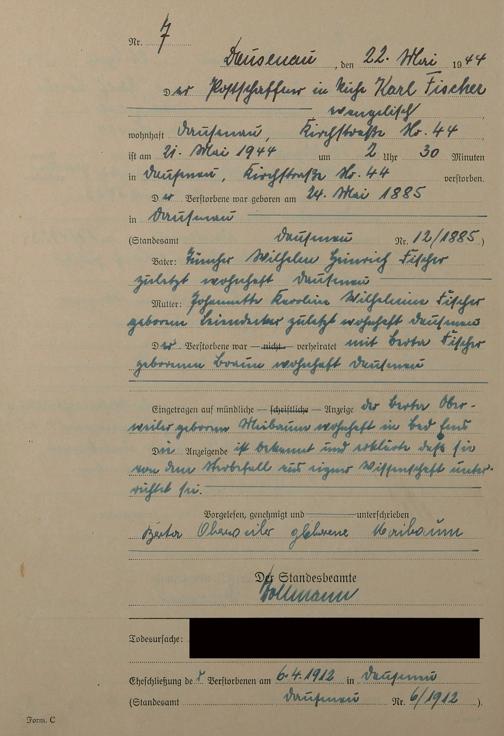 Nr. 7
Dausenau, den 22. Mai 1944
Der Postschaffner in Ruhe Karl Fischer
evangelisch
wohnhaft Dausenau, Kirchstraße No. 44
ist am 21. Mai 1944 um 2 Uhr 30 Minuten
in Dausenau, Kirchstraße No. 44 verstorben.
Der Verstorbene war geboren am 24. Mai 1885
in Dausenau
(Standesamt Dausenau Nr. 12/1885.)
Vater: Wilhelm Heinrich Fischer
zuletzt wohnhaft Dausenau
Mutter: Johannette Karoline Wilhelmine Fischer
geborene zuletzt wohnhaft Dausenau
Der Verstorbene war — nicht — verheiratet mit Berta Fischer
geborenen wohnhaft Dausenau
Eingetragen auf mündliche — schriftliche — Anzeige der Berta Ober-
weiler geborene Maibaum wohnhaft in Bad Ems
Die Anzeigende ist bekannt und erklärte daß sie
von dem Sterbefall aus eigener Wissenschaft unter-
richtet sei.
Vorgelesen, genehmigt und unterschrieben
Berta Oberweiler geborene Maibaum
Der Standesbeamte
Todesursache:
Eheschließung der Verstorbenen am 6.4.1912 in Dausenau
(Standesamt Dausenau Nr. 6/1912).
Form. C